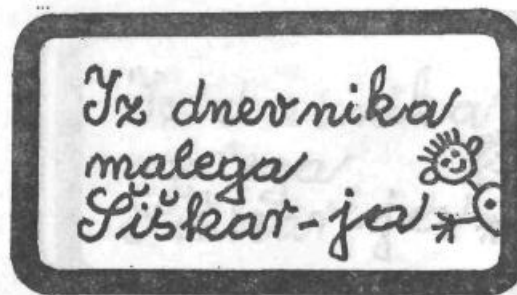 ...
Iz dnevnika
malega
Šiškar-ja